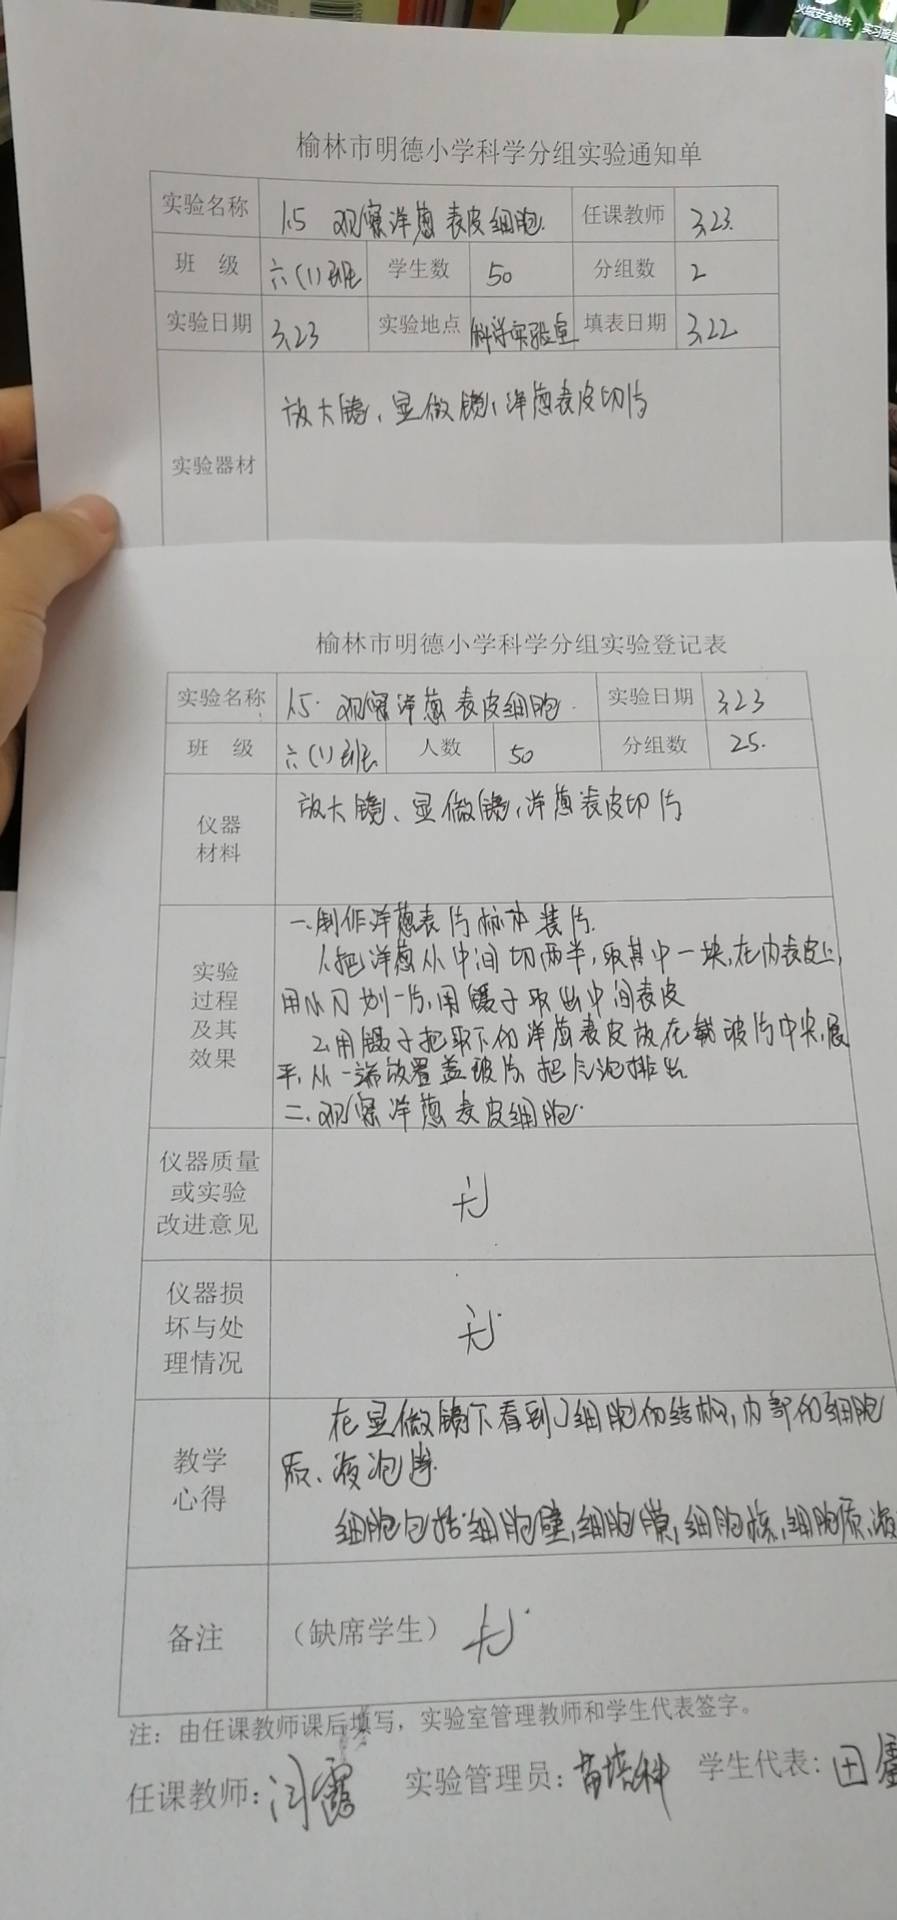 火绒安全软件 实习报告
榆林市明德小学科学分组实验通知单
实验名称 1.5 观察洋葱表皮细胞. 任课教师 3.23.
班 级 六(1)班 学生数 50 分组数 2
实验日期 3.23 实验地点 科学实验室 填表日期 3.22
实验器材 放大镜、显做镜、洋葱表皮切片
榆林市明德小学科学分组实验登记表
实验名称 1.5. 观察洋葱表皮细胞. 实验日期 3.23
班 级 六(1)班 人数 50 分组数 25.
仪器
材料
放大镜、显做镜、洋葱表皮切片
实验
过程
及其
效果
一.制作洋葱表片标本装片.
1.把洋葱从中间切两半,取其中一块,在内表皮上,
用小刀划一片,用镊子取出中间表皮
2.用镊子把取下的洋葱表皮放在载玻片中央,展
平,从一端放置盖玻片,把气泡排出
二.观察洋葱表皮细胞.
仪器质量
或实验
改进意见
无
仪器损
坏与处
理情况
无
教学
心得
在显做镜下看到了细胞的结构,内部的细胞
质、液泡等.
细胞包括:细胞壁,细胞膜,细胞核,细胞质,液
备注 (缺席学生) 无
注:由任课教师课后填写,实验室管理教师和学生代表签字。
任课教师:闫露 实验管理员:苗培科 学生代表:田